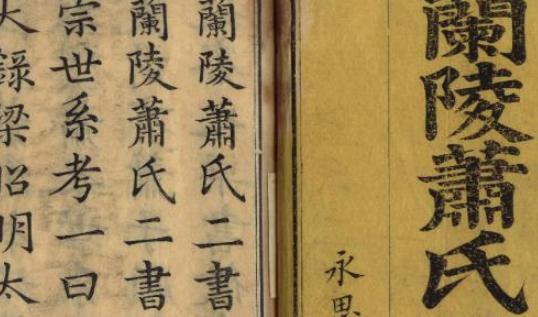 蘭陵蕭氏
永思
蘭陵蕭氏二書
蘭陵蕭氏二書
宗世系考一曰
大錄梁昭明太